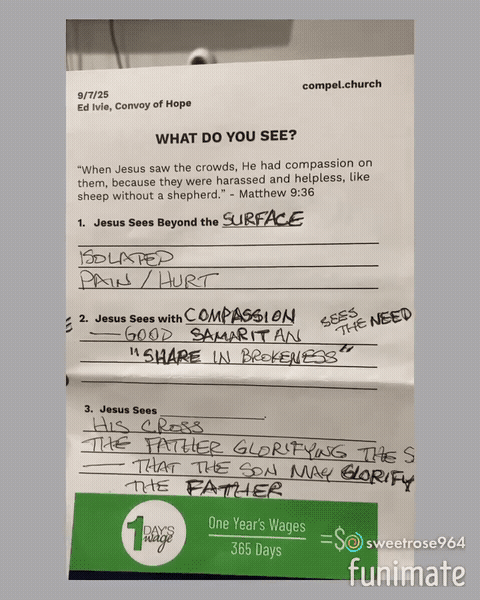 9/7/25
Ed Ivie, Convoy of Hope
compel.church
WHAT DO YOU SEE?
"When Jesus saw the crowds, He had compassion on
them, because they were harassed and helpless, like
sheep without a shepherd." - Matthew 9:36
1. Jesus Sees Beyond the SURFACE
ISOLATED
PAIN / HURT
2. Jesus Sees with COMPASSION
SEES
THE NEED
— GOOD SAMARITAN
"SHARE IN BROKENESS"
3. Jesus Sees
HIS CROSS
THE FATHER GLORIFYING THE S
— THAT THE SON MAY GLORIFY
THE FATHER
1 DAY'S
wage
One Year's Wages
365 Days
=$
sweetrose964
funimate